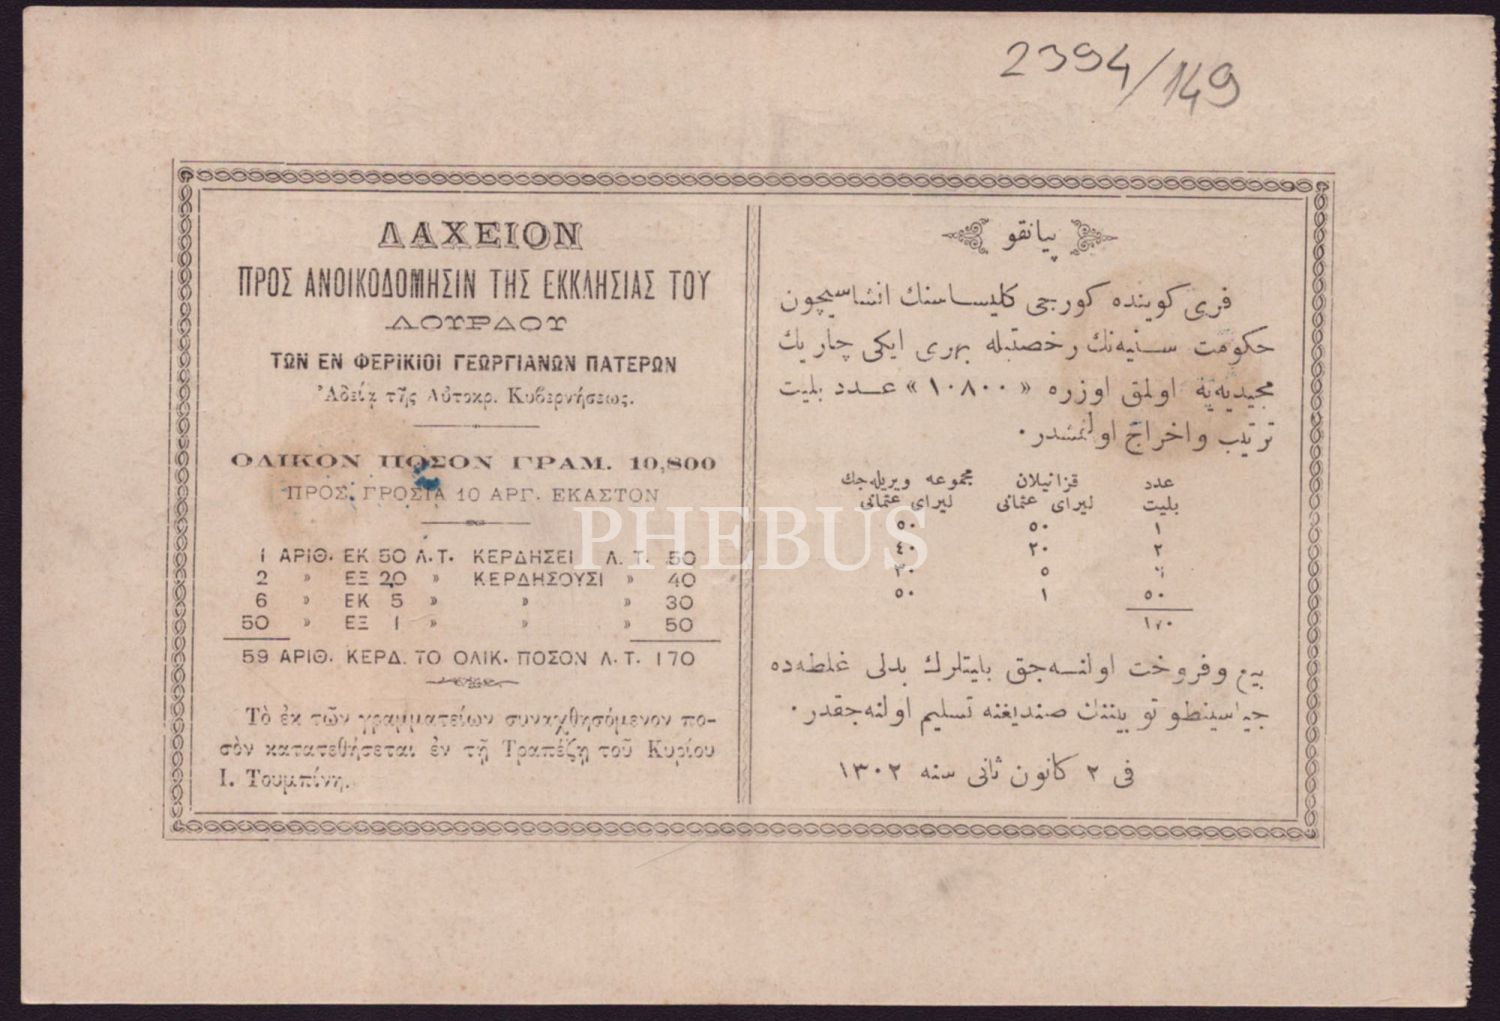 2394/149
ΛΑΧΕΙΟΝ
ΠΡΟΣ ΑΝΟΙΚΟΔΟΜΗΣΙΝ ΤΗΣ ΕΚΚΛΗΣΙΑΣ ΤΟΥ
ΛΟΥΡΔΟΥ
ΤΩΝ ΕΝ ΦΕΡΙΚΙΟΙ ΓΕΩΡΓΙΑΝΩΝ ΠΑΤΕΡΩΝ
Ἀδείᾳ τῆς Αὐτοκρ. Κυβερνήσεως.
ΟΛΙΚΟΝ ΠΟΣΟΝ ΓΡΑΜ. 10,800
ΠΡΟΣ ΓΡΟΣΙΑ 10 ΑΡΓ. ΕΚΑΣΤΟΝ
1 ΑΡΙΘ. ΕΚ 50 Λ.Τ. ΚΕΡΔΗΣΕΙ Λ. Τ. 50
2 » ΕΞ 20 » ΚΕΡΔΗΣΟΥΣΙ » 40
6 » ΕΚ 5 » » » 30
50 » ΕΞ 1 » » » 50
59 ΑΡΙΘ. ΚΕΡΔ. ΤΟ ΟΛΙΚ. ΠΟΣΟΝ Λ. Τ. 170
Τὸ ἐκ τῶν γραμματείων συναχθησόμενον πο-
σὸν κατατεθήσεται ἐν τῇ Τραπέζῃ τοῦ Κυρίου
Ι. Τουμπίνη.
پیانقو
فری کوینده کورجی کلیساسنك انشاسیچون
حکومت سنیه‌نك رخصتیله بهری ایکی چاریك
مجیدیه‌یه اولمق اوزره «١٠٨٠٠» عدد بلیت
ترتیب و اخراج اولنمشدر.
عدد قزانیلان مجموعه ویریله‌جك
بلیت لیرای عثمانی لیرای عثمانی
١ ٥٠ ٥٠
٢ ٢٠ ٤٠
٥ ٣٠
٥٠ ١ ٥٠
١٧٠
بیع و فروخت اولنه‌جق بلیتلرك بدلی غلطه‌ده
جیاسینطو توبینینك صندیغنه تسلیم اولنه‌جقدر.
فی ٢ کانون ثانی سنه ١٣٠٢
PHEBUS